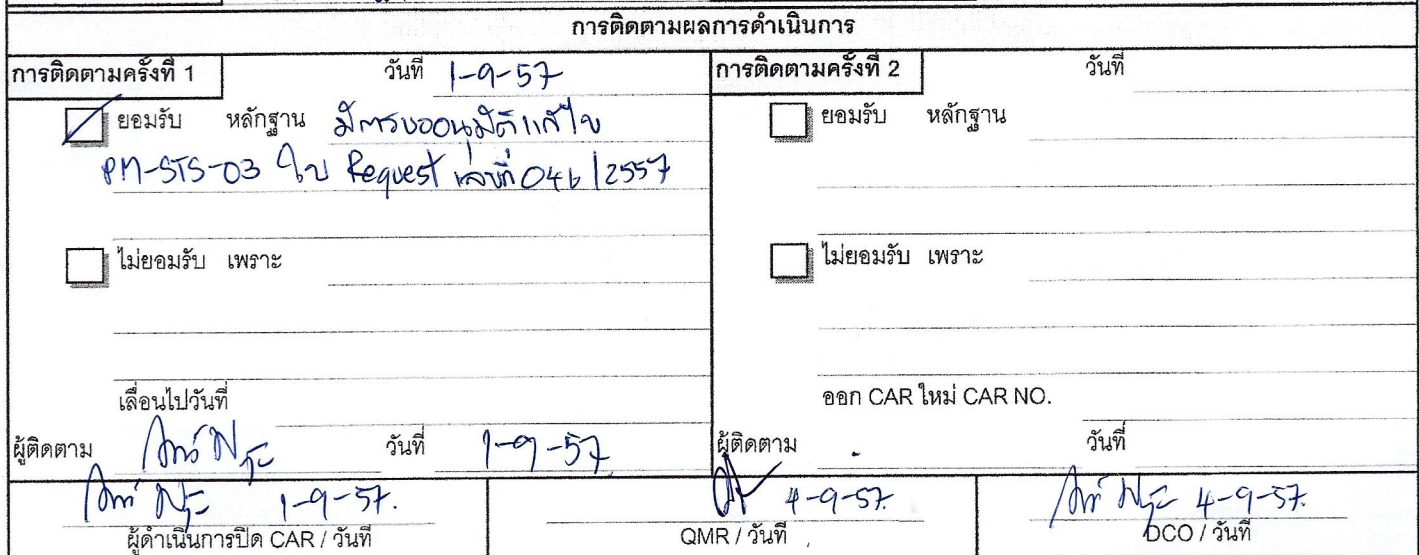 การติดตามผลการดำเนินการ
การติดตามครั้งที่ 1 วันที่ 1-9-57
ยอมรับ หลักฐาน มีการขออนุมัติแก้ไข
PM-STS-03 ใบ Request เลขที่ 046/2557
ไม่ยอมรับ เพราะ
เลื่อนไปวันที่
ผู้ติดตาม วันที่ 1-9-57
การติดตามครั้งที่ 2 วันที่
ยอมรับ หลักฐาน
ไม่ยอมรับ เพราะ
ออก CAR ใหม่ CAR NO.
ผู้ติดตาม วันที่
1-9-57.
ผู้ดำเนินการปิด CAR / วันที่
4-9-57.
QMR / วันที่
4-9-57.
DCO / วันที่